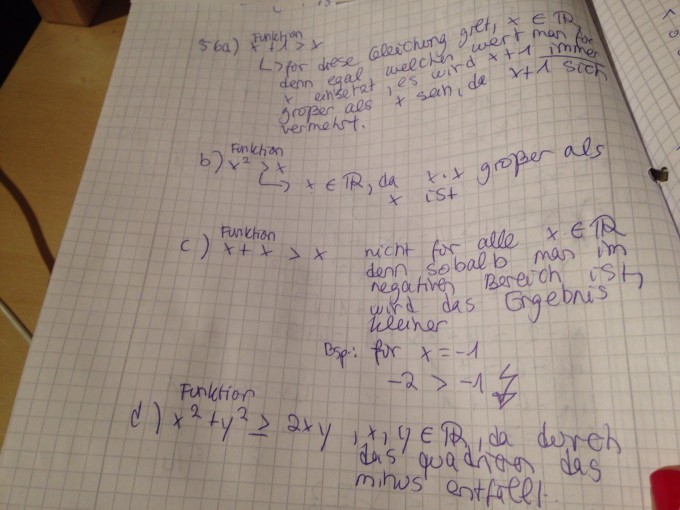 56a) Funktion
x + 1 > x
↳ für diese Gleichung gilt, x ∈ ℝ,
denn egal welchen wert man für
x einsetzt, es wird x+1 immer
größer als x sein, da x+1 sich
vermehrt.
b) Funktion
x² > x
↳ x ∈ ℝ, da x·x größer als
x ist
c) Funktion
x + x > x nicht für alle x ∈ ℝ
denn sobalb man im
negativen Bereich ist,
wird das Ergebnis
kleiner
Bsp.: für x = -1
-2 > -1 ↯
Funktion
d) x² + y² ≥ 2xy , x, y ∈ ℝ, da durch
das quadrieren das
minus entfällt.